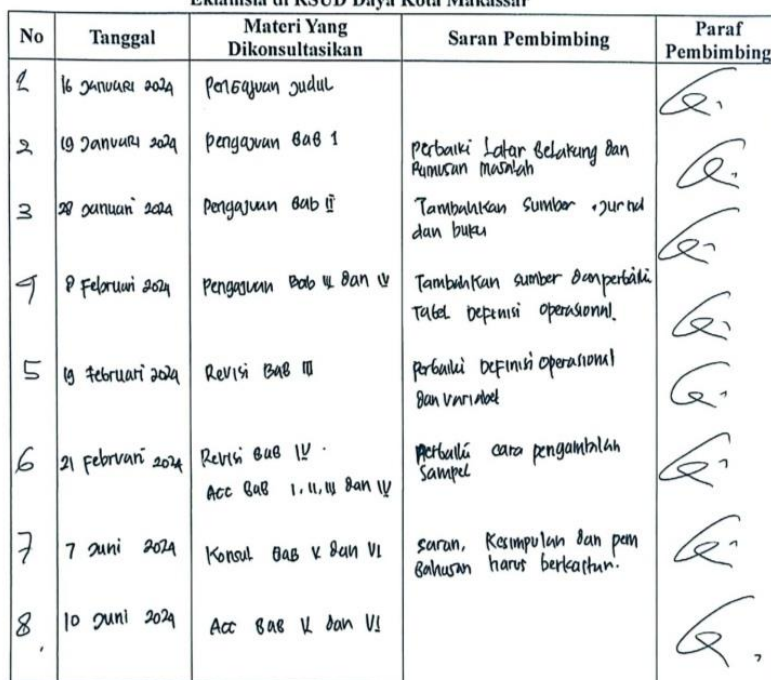 Eklamsia di RSUD Daya Kota Makassar
No Tanggal Materi Yang Dikonsultasikan Saran Pembimbing Paraf Pembimbing
1 16 Januari 2024 Pengajuan Judul
2 19 Januari 2024 Pengajuan BAB 1 Perbaiki Latar Belakang dan
Rumusan Masalah
3 28 Januari 2024 Pengajuan Bab II Tambahkan Sumber Jurnal
dan buku
4 8 Februari 2024 Pengajuan Bab III dan IV Tambahkan sumber dan perbaiki
Tabel Definisi Operasional.
5 19 Februari 2024 Revisi BAB III Perbaiki Definisi Operasional
dan Variabel
6 21 Februari 2024 Revisi BAB IV. Perbaiki cara pengambilan
Acc BAB I, II, III dan IV Sampel
7 7 Juni 2024 Konsul BAB V dan VI Saran, Kesimpulan dan pem
Bahasan harus berkaitan.
8. 10 Juni 2024 Acc BAB V dan VI